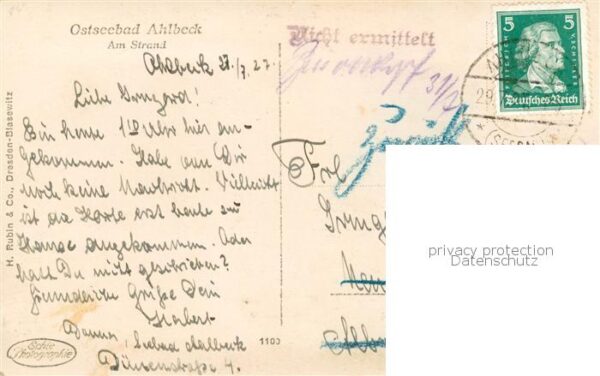 Ostseebad Ahlbeck
Am Strand
Nicht ermittelt
Ahlbeck 28./7. 27.
31/7
5 5
Deutsches Reich
29.
Zurück
Liebe Irmgard!
Bin heute 1 Uhr hier an-
gekommen. Habe von Dir
noch keine Nachricht. Vielleicht
ist die Karte erst heute zu
Hause angekommen. Oder
hast Du nicht geschrieben?
Freundliche Grüße Dein
Herbert
Seebad Ahlbeck
Dünenstraße 4.
Frl
Irmg
H. Rubin & Co., Dresden-Blasewitz
Echte
Photographie
1100
privacy protection
Datenschutz